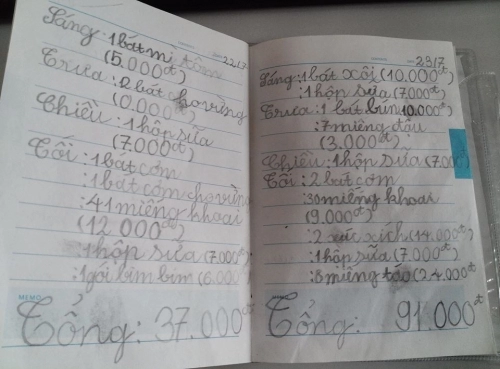 22/7
Sáng: 1 bát mì tôm
(5.000đ)
Trưa: 2 bát cháo vừng
(0.000đ)
Chiều: 1 hộp sữa
(7.000đ)
Tối: 1 bát cơm
: 1 bát cơm cháo vừng
: 41 miếng khoai
(12 000đ)
: 1 hộp sữa (7.000đ)
: 1 gói bim bim (6.000
MEMO
Tổng: 37.000đ
23/7
Sáng: 1 bát xôi (10.000đ)
: 1 hộp sữa (7000đ)
Trưa: 1 bát bún (10.000đ)
: 7 miếng đậu
(3.000đ)
Chiều: 1 hộp sữa (7.000
Tối: 2 bát cơm
: 30 miếng khoai
(9.000đ)
: 2 xúc xích (14.000đ)
: 1 hộp sữa (7.000đ)
: 8 miếng táo (24.000đ
Tổng: 91.000đ